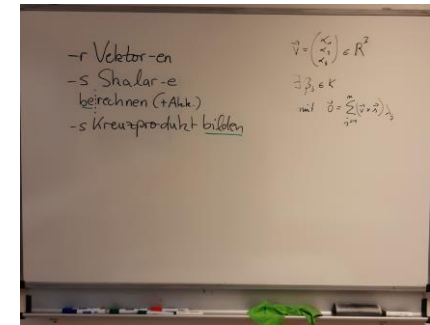 -r Vektor-en
-s Skalar-e
berechnen (+Akk.)
-s Kreuzprodukt bilden
v⃗ = (α₁ α₂ α₃) ∈ R³
∃ β₃ ∈ K
mit 0⃗ =